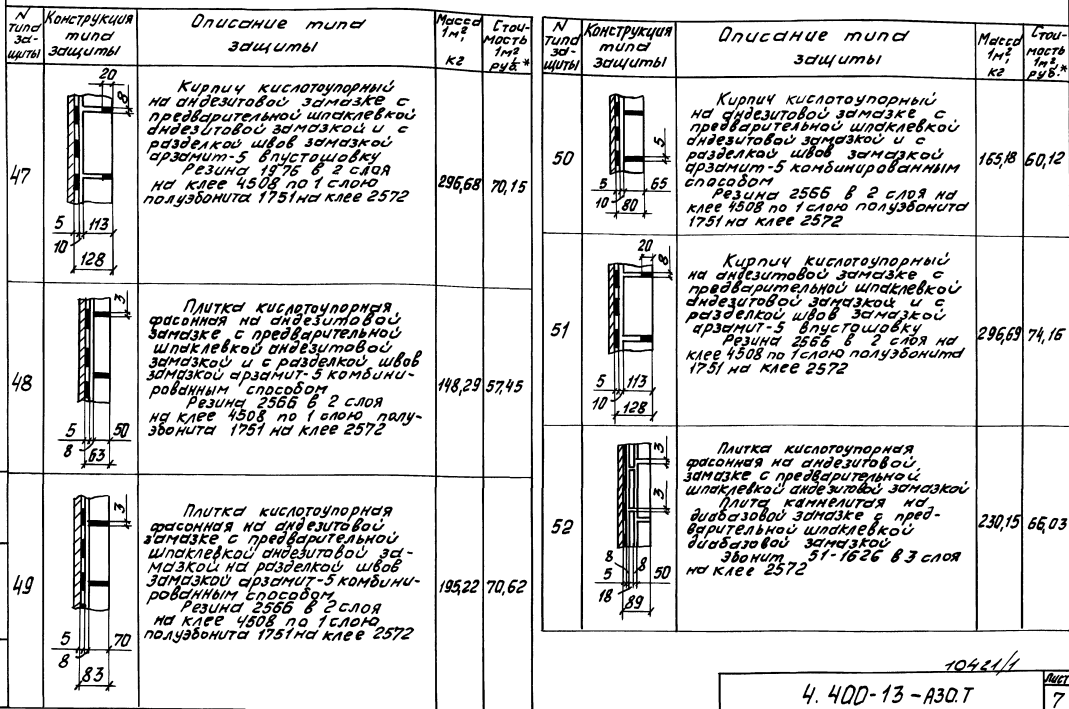 N типа за- щиты
Конструкция типа защиты
Описание типа защиты
Масса 1м², кг
Стои- мость 1м² руб.*
47
20
8
5
113
10
128
Кирпич кислотоупорный
на андезитовой замазке с
предварительной шпаклевкой
андезитовой замазкой и с
разделкой швов замазкой
арзамит-5 впустошовку
Резина 1976 в 2 слоя
на клее 4508 по 1 слою
полуэбонита 1751 на клее 2572
296,68
70,15
48
3
5
50
8
63
Плитка кислотоупорная
фасонная на андезитовой
замазке с предварительной
шпаклевкой андезитовой
замазкой и с разделкой швов
замазкой арзамит-5 комбини-
рованным способом
Резина 2566 в 2 слоя
на клее 4508 по 1 слою полу-
эбонита 1751 на клее 2572
148,29
57,45
49
3
5
70
8
83
Плитка кислотоупорная
фасонная на андезитовой
замазке с предварительной
шпаклевкой андезитовой за-
мазкой на разделкой швов
замазкой арзамит-5 комбини-
рованным способом
Резина 2566 в 2 слоя
на клее 4508 по 1 слою
полуэбонита 1751 на клее 2572
195,22
70,62
N типа за- щиты
Конструкция типа защиты
Описание типа защиты
Масса 1м², кг
Стои- мость 1м² руб.*
50
5
5
65
10
80
Кирпич кислотоупорный
на андезитовой замазке с
предварительной шпаклевкой
андезитовой замазкой и с
разделкой швов замазкой
арзамит-5 комбинированным
способом
Резина 2566 в 2 слоя на
клее 4508 по 1 слою полуэбонита
1751 на клее 2572
165,18
60,12
51
20
8
5
113
10
128
Кирпич кислотоупорный
на андезитовой замазке с
предварительной шпаклевкой
андезитовой замазкой и с
разделкой швов замазкой
арзамит-5 впустошовку
Резина 2566 в 2 слоя на
клее 4508 по 1 слою полуэбонита
1751 на клее 2572
296,69
74,16
52
3
3
8
8
5
50
18
89
Плитка кислотоупорная
фасонная на андезитовой
замазке с предварительной
шпаклевкой андезитовой замазкой
Плита каммелитая на
диабазовой замазке с пред-
варительной шпаклевкой
диабазовой замазкой
Эбонит 51-1626 в 3 слоя
на клее 2572
230,15
66,03
10421/1
4.400-13-АЗО.Т
Лист
7